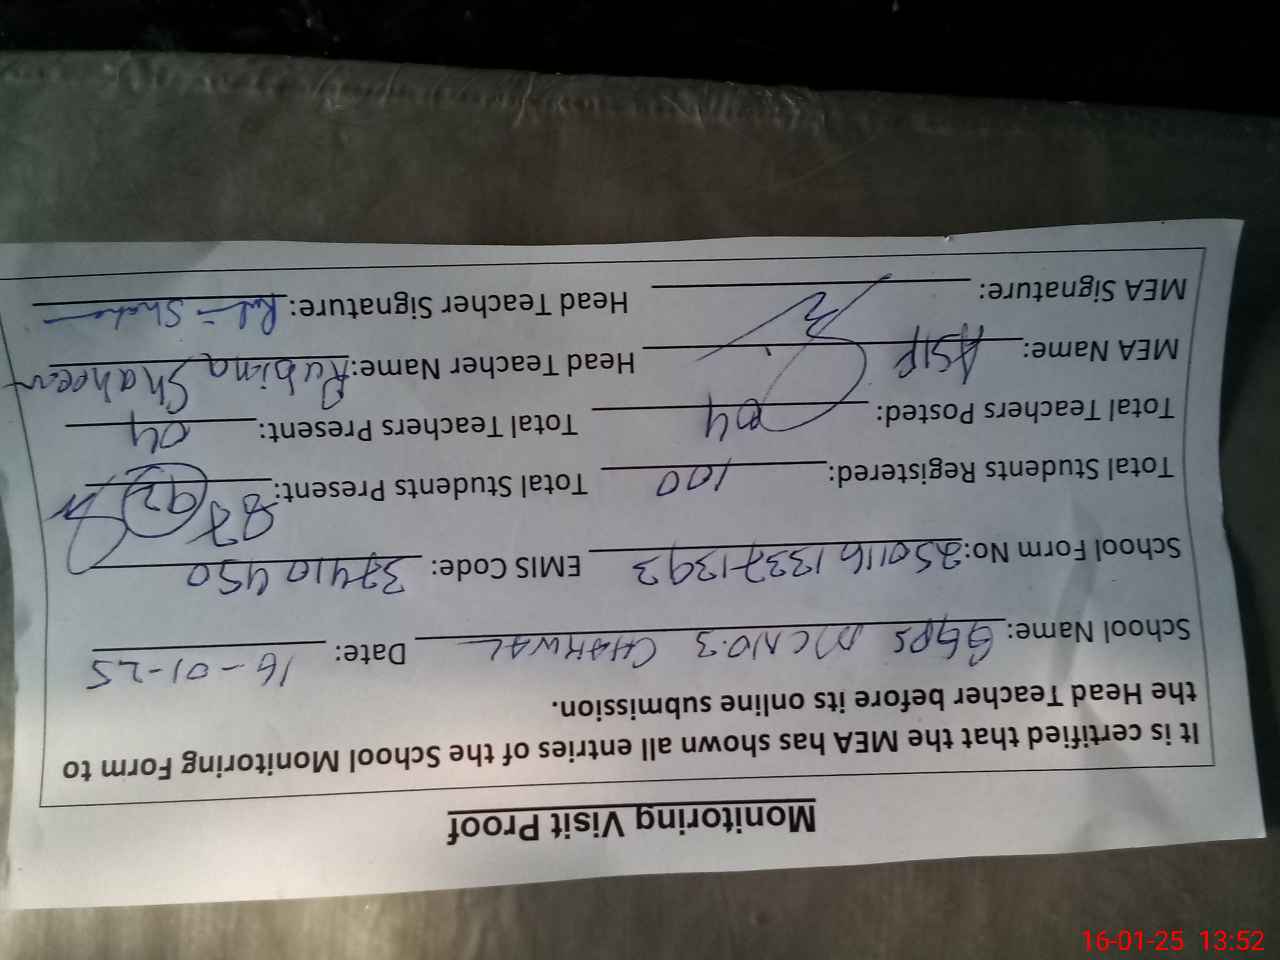 Monitoring Visit Proof
It is certified that the MEA has shown all entries of the School Monitoring Form to
the Head Teacher before its online submission.
School Name: GGPS MC NO.3 CHAKWAL Date: 16-01-25
School Form No: 25011613371393 EMIS Code: 37410450
Total Students Registered: 100 Total Students Present: 87 92
Total Teachers Posted: 04 Total Teachers Present: 04
MEA Name: ASIF Head Teacher Name: Rubina Shaheen
MEA Signature: Head Teacher Signature:
16-01-25 13:52